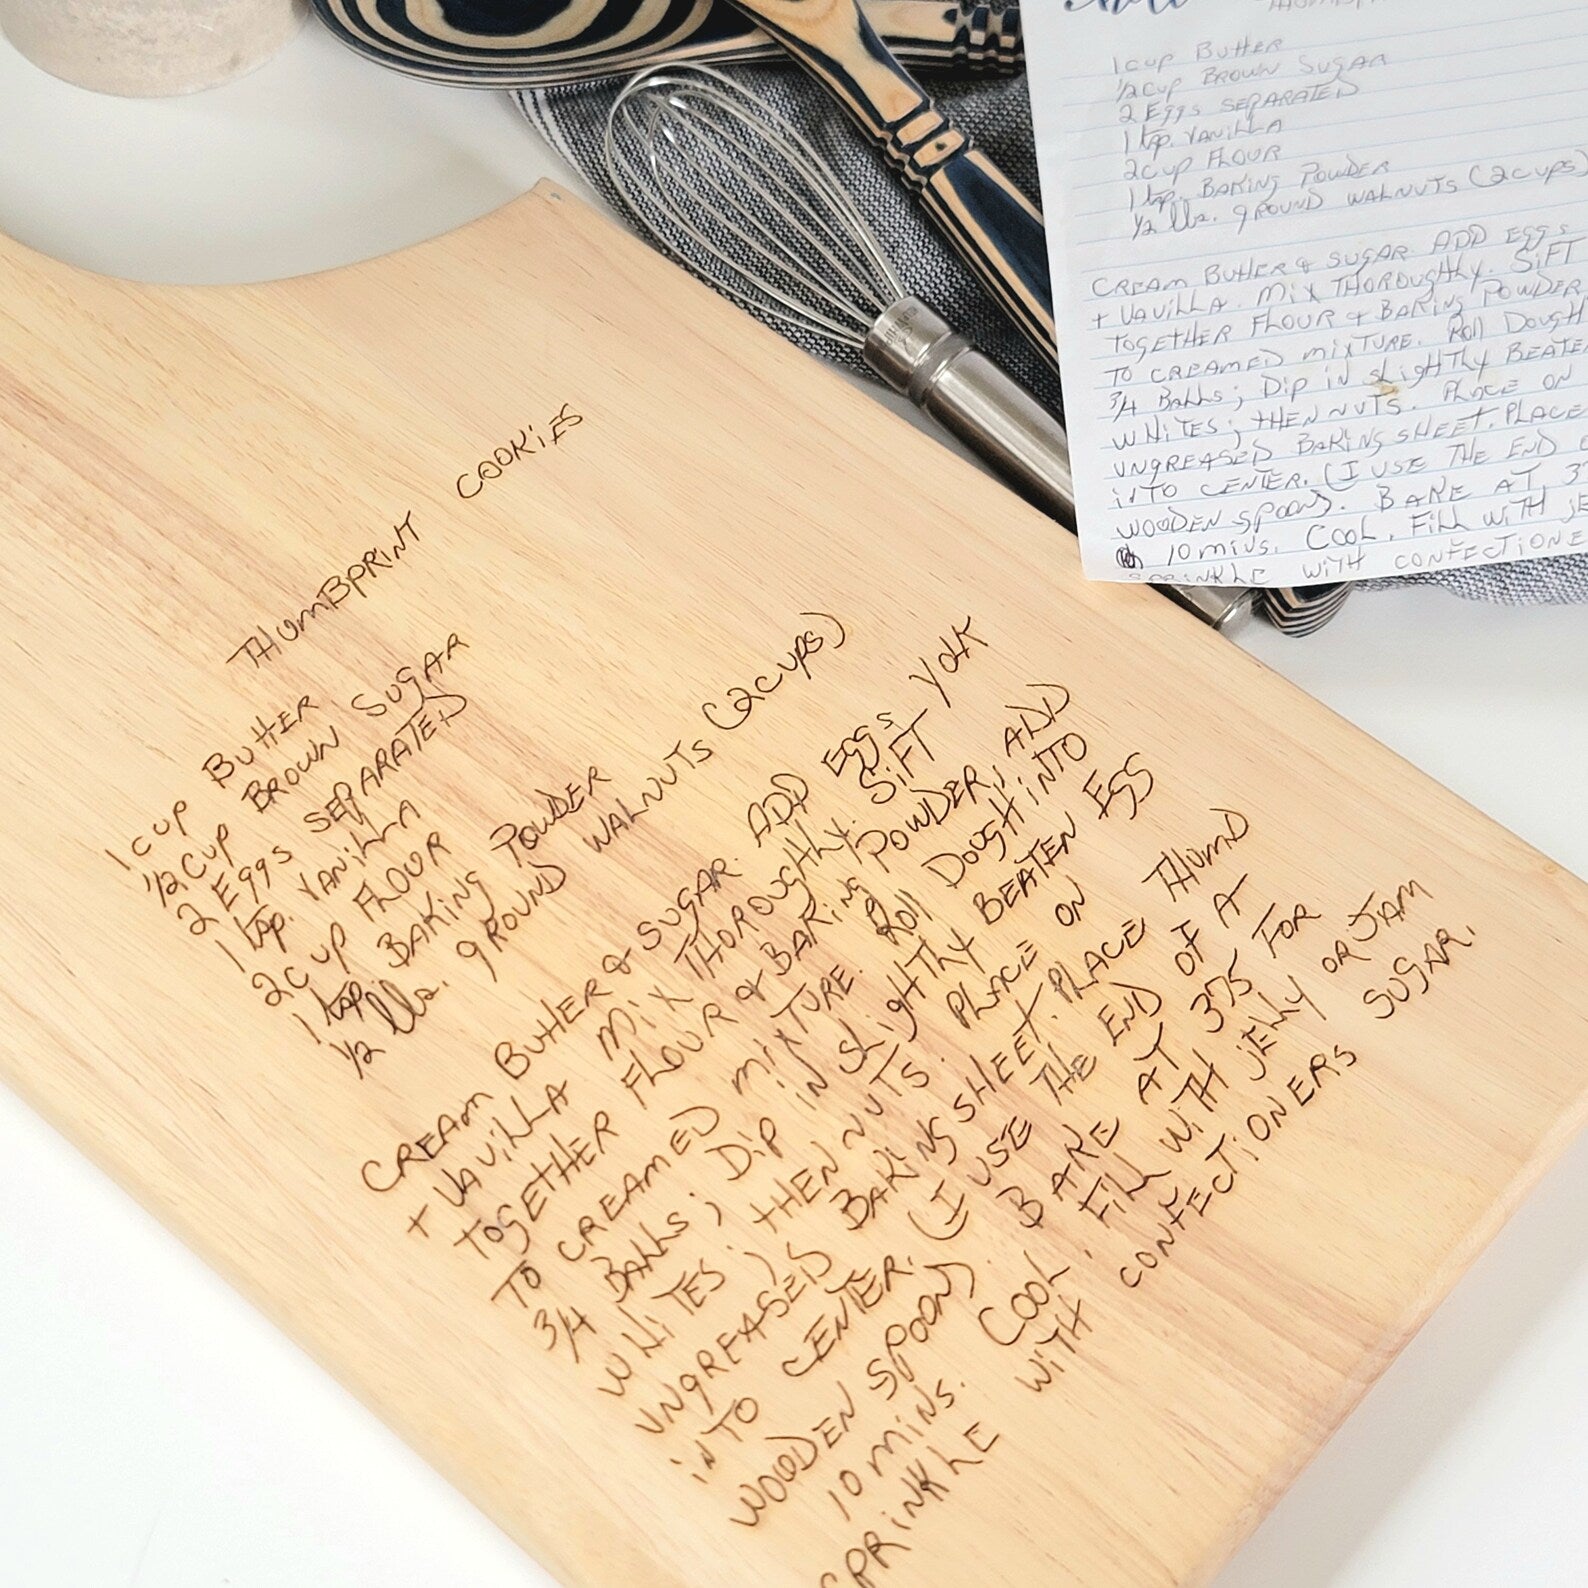 THUMBPRINT COOKIES
1 CUP BUTTER
1/2 CUP BROWN SUGAR
2 Eggs SEPARATED
1 tsp. VANILLA
2 CUP FLOUR
1 tsp. BAKING POWDER
1/2 lbs. gROUND WALNUTS (2 CUPS)
CREAM BUTTER & SUGAR. ADD Eggs YOLK
+ VAVILLA MIX THOROUGHLY. SIFT
TOGETHER FLOUR & BAKING POWDER, ADD
TO CREAMED MIXTURE. Roll DOUGH INTO
3/4 BALLS; DIP IN SLIGHTLY BEATEN EGG
WHITES; THEN NUTS. PLACE ON
UNGREASED BAKING SHEET. PLACE THUMB
INTO CENTER. (I USE THE END OF A
WOODEN SPOON). BAKE AT 375 FOR
10 MINS. COOL. FILL WITH JELLY OR JAM
SPRINKLE WITH CONFECTIONERS SUGAR.
1 CUP BUTTER
1/2 CUP BROWN SUGAR
2 Eggs SEPARATED
1 tsp. VANILLA
2 CUP FLOUR
1 tsp. BAKING POWDER
1/2 lbs. gROUND WALNUTS (2 CUPS)
CREAM BUTTER & SUGAR. ADD Eggs
+ VAVILLA. MIX THOROUGHLY. SIFT
TOGETHER FLOUR & BAKING POWDER
TO CREAMED MIXTURE. Roll DOUGH
3/4 BALLS; DIP IN SLIGHTLY BEATEN
WHITES; THEN NUTS. PLACE ON
UNGREASED BAKING SHEET. PLACE
INTO CENTER. (I USE THE END
WOODEN SPOON). BAKE AT
10 MINS. COOL. FILL WITH
SPRINKLE WITH CONFECTIONE